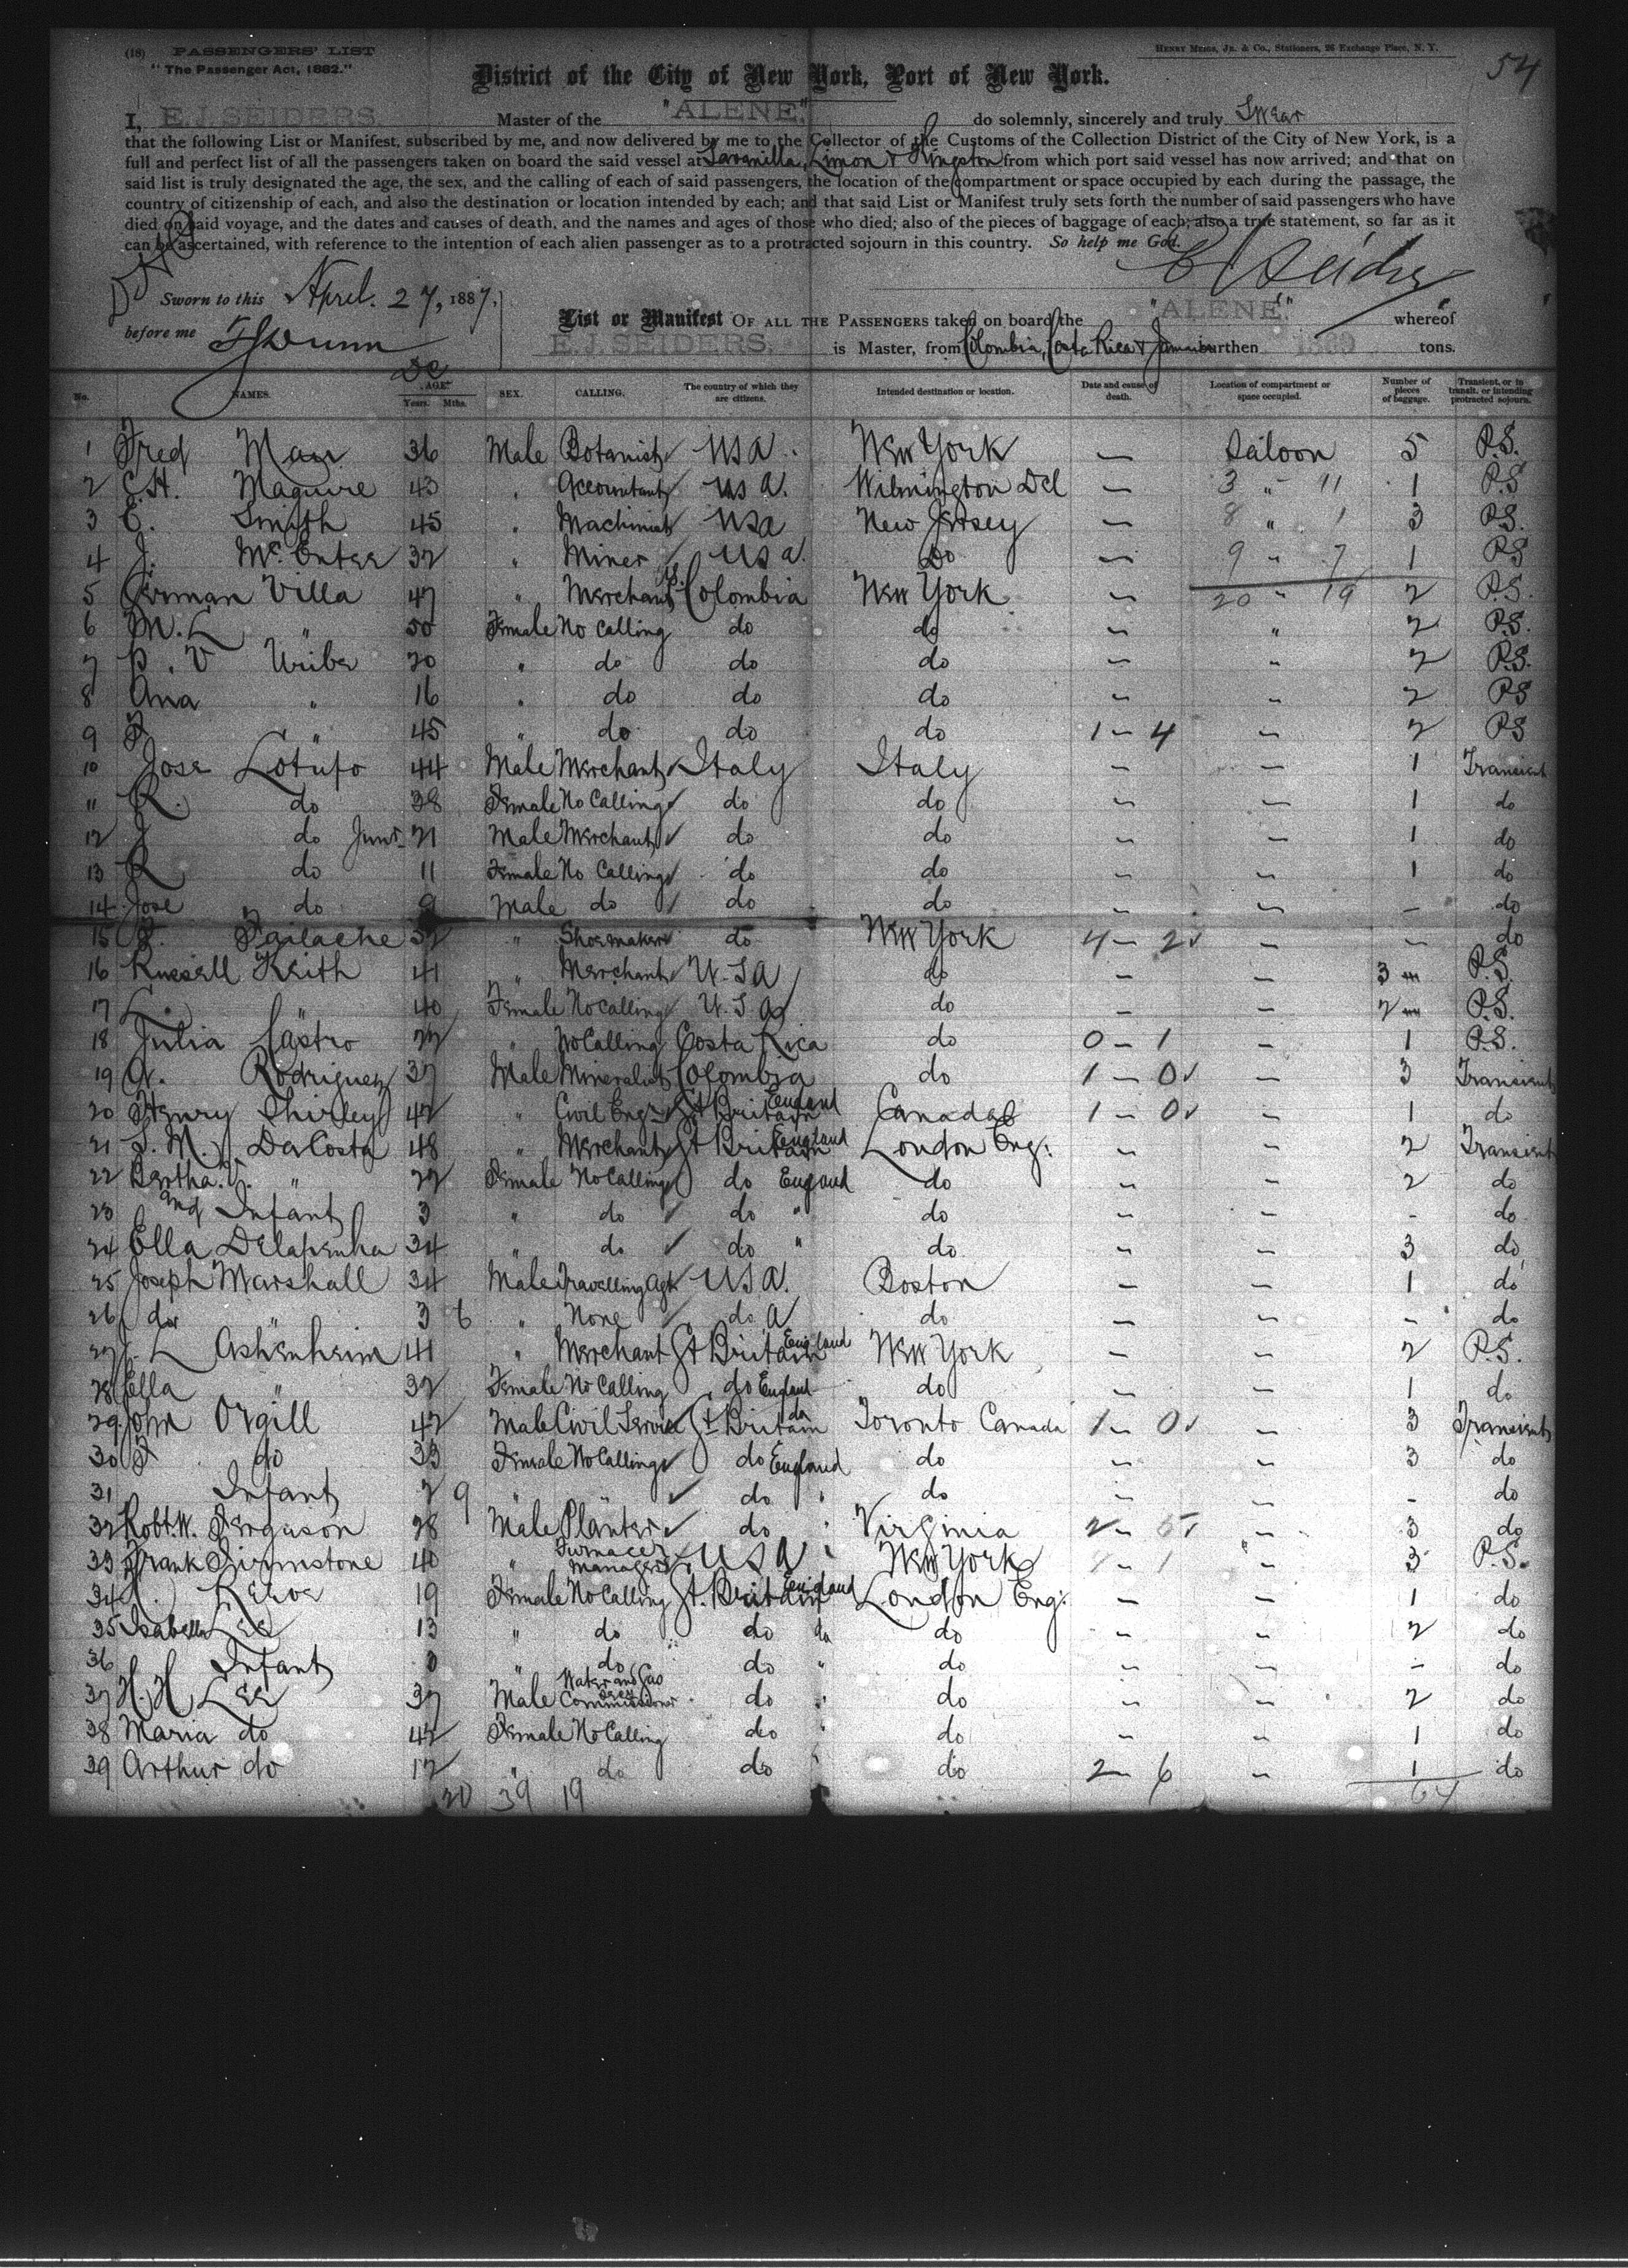 (18) PASSENGERS' LIST
HENRY MEIGS, JR. & CO., Stationers, 26 Exchange Place, N. Y.
54
"The Passenger Act, 1882."
District of the City of New York, Port of New York.
I, E. J. SEIDERS Master of the "ALENE" do solemnly, sincerely and truly Swear
that the following List or Manifest, subscribed by me, and now delivered by me to the Collector of the Customs of the Collection District of the City of New York, is a
full and perfect list of all the passengers taken on board the said vessel at Savanilla, Limon & Kingston from which port said vessel has now arrived; and that on
said list is truly designated the age, the sex, and the calling of each of said passengers, the location of the compartment or space occupied by each during the passage, the
country of citizenship of each, and also the destination or location intended by each; and that said List or Manifest truly sets forth the number of said passengers who have
died on said voyage, and the dates and causes of death, and the names and ages of those who died; also of the pieces of baggage of each; also a true statement, so far as it
can be ascertained, with reference to the intention of each alien passenger as to a protracted sojourn in this country. So help me God.
E J Seiders
Sworn to this April. 27, 1887,
before me
List or Manifest OF ALL THE PASSENGERS taken on board the "ALENE" whereof
E. J. SEIDERS. is Master, from Colombia, Costa Rica & Jamaica burthen 1839 tons.
No. NAMES. AGE Years. Mths. SEX. CALLING. The country of which they are citizens. Intended destination or location. Date and cause of death. Location of compartment or space occupied. Number of pieces of baggage. Transient, or in transit, or intending protracted sojourn.
1 Fred May 36 Male Botanist USA New York — Saloon 5 P.S.
2 C.H. Maguire 43 " Accountant USA. Wilmington Del — 3 " 11 1 P.S
3 E. Smith 45 " Machinist USA New Jersey — 8 " 1 3 P.S.
4 J. McEntee 32 " Miner USA. Do — 9 " 7 1 P.S
5 German Villa 47 " Merchant Colombia New York — 20 " 19 2 P.S.
6 M. L " 50 Female No Calling do do — " 2 P.S.
7 P. V Uribe 20 " do do do — " 2 P.S.
8 Ana " 16 " do do do — " 2 PS
9 F " 45 " do do do 1 — 4 — 2 PS
10 Jose Lotufo 44 Male Merchant Italy Italy — — 1 Transient
11 R. do 38 Female No Calling do do — — 1 do
12 J do Junr. 21 Male Merchant do do — — 1 do
13 R do 11 Female No Calling do do — — 1 do
14 Jose do 9 Male do do do — — — do
15 F. 32 " Shoemaker do New York 4 — 2 — — do
16 Russell Keith 41 " Merchant U.S A do — — 3 P.S.
17 L. " 40 Female No Calling U.S A do — — 2 P.S.
18 Julia Castro 22 " No Calling Costa Rica do 0 — 1 — 1 P.S.
19 A. Rodriguez 37 Male Mineralist Colombia do 1 — 0 — 3 Transient
20 Henry Shirley 42 " Civil Engr Gt Britain England Canada 1 — 0 — 1 do
21 S. M. DaCosta 48 " Merchant Gt Britain England London Eng. — — 2 Transient
22 Bertha. " 22 Female No Calling do England do — — 2 do
23 and Infant 3 " do do " do — — - do
24 Ella Delapenha 34 " do do " do — — 3 do
25 Joseph Marshall 34 Male Travelling Agt USA. Boston — — 1 do
26 do " 3 6 " None do A do — — - do
27 J. L Ashenheim 41 " Merchant Gt Britain England New York — — 2 P.S.
28 Ella " 32 Female No Calling do England do — — 1 do
29 John Orgill 42 Male Civil Service Gt Britain do Toronto Canada 1 — 0 — 3 Transient
30 F do 33 Female No Calling do England do — — 3 do
31 Infant 2 9 " " do " do — — - do
32 Robt. W. Ferguson 28 Male Planter do " Virginia 2 — 5 — 3 do
33 Frank Firmstone 40 " Furnace Manager USA New York 1 " 3 P.S.
34 19 Female No Calling Gt. Britain England London Eng. — — 1 do
35 Isabella Lee 13 " do do do do — — 2 do
36 Infant " do do " do — — - do
37 H. H Lee 37 Male Water and Gas Commissioner do " do — — 2 do
38 Maria do 42 Female No Calling do " do — — 1 do
39 Arthur do 12 " do do " do 2 — 6 — 1 do
20 39 19 64